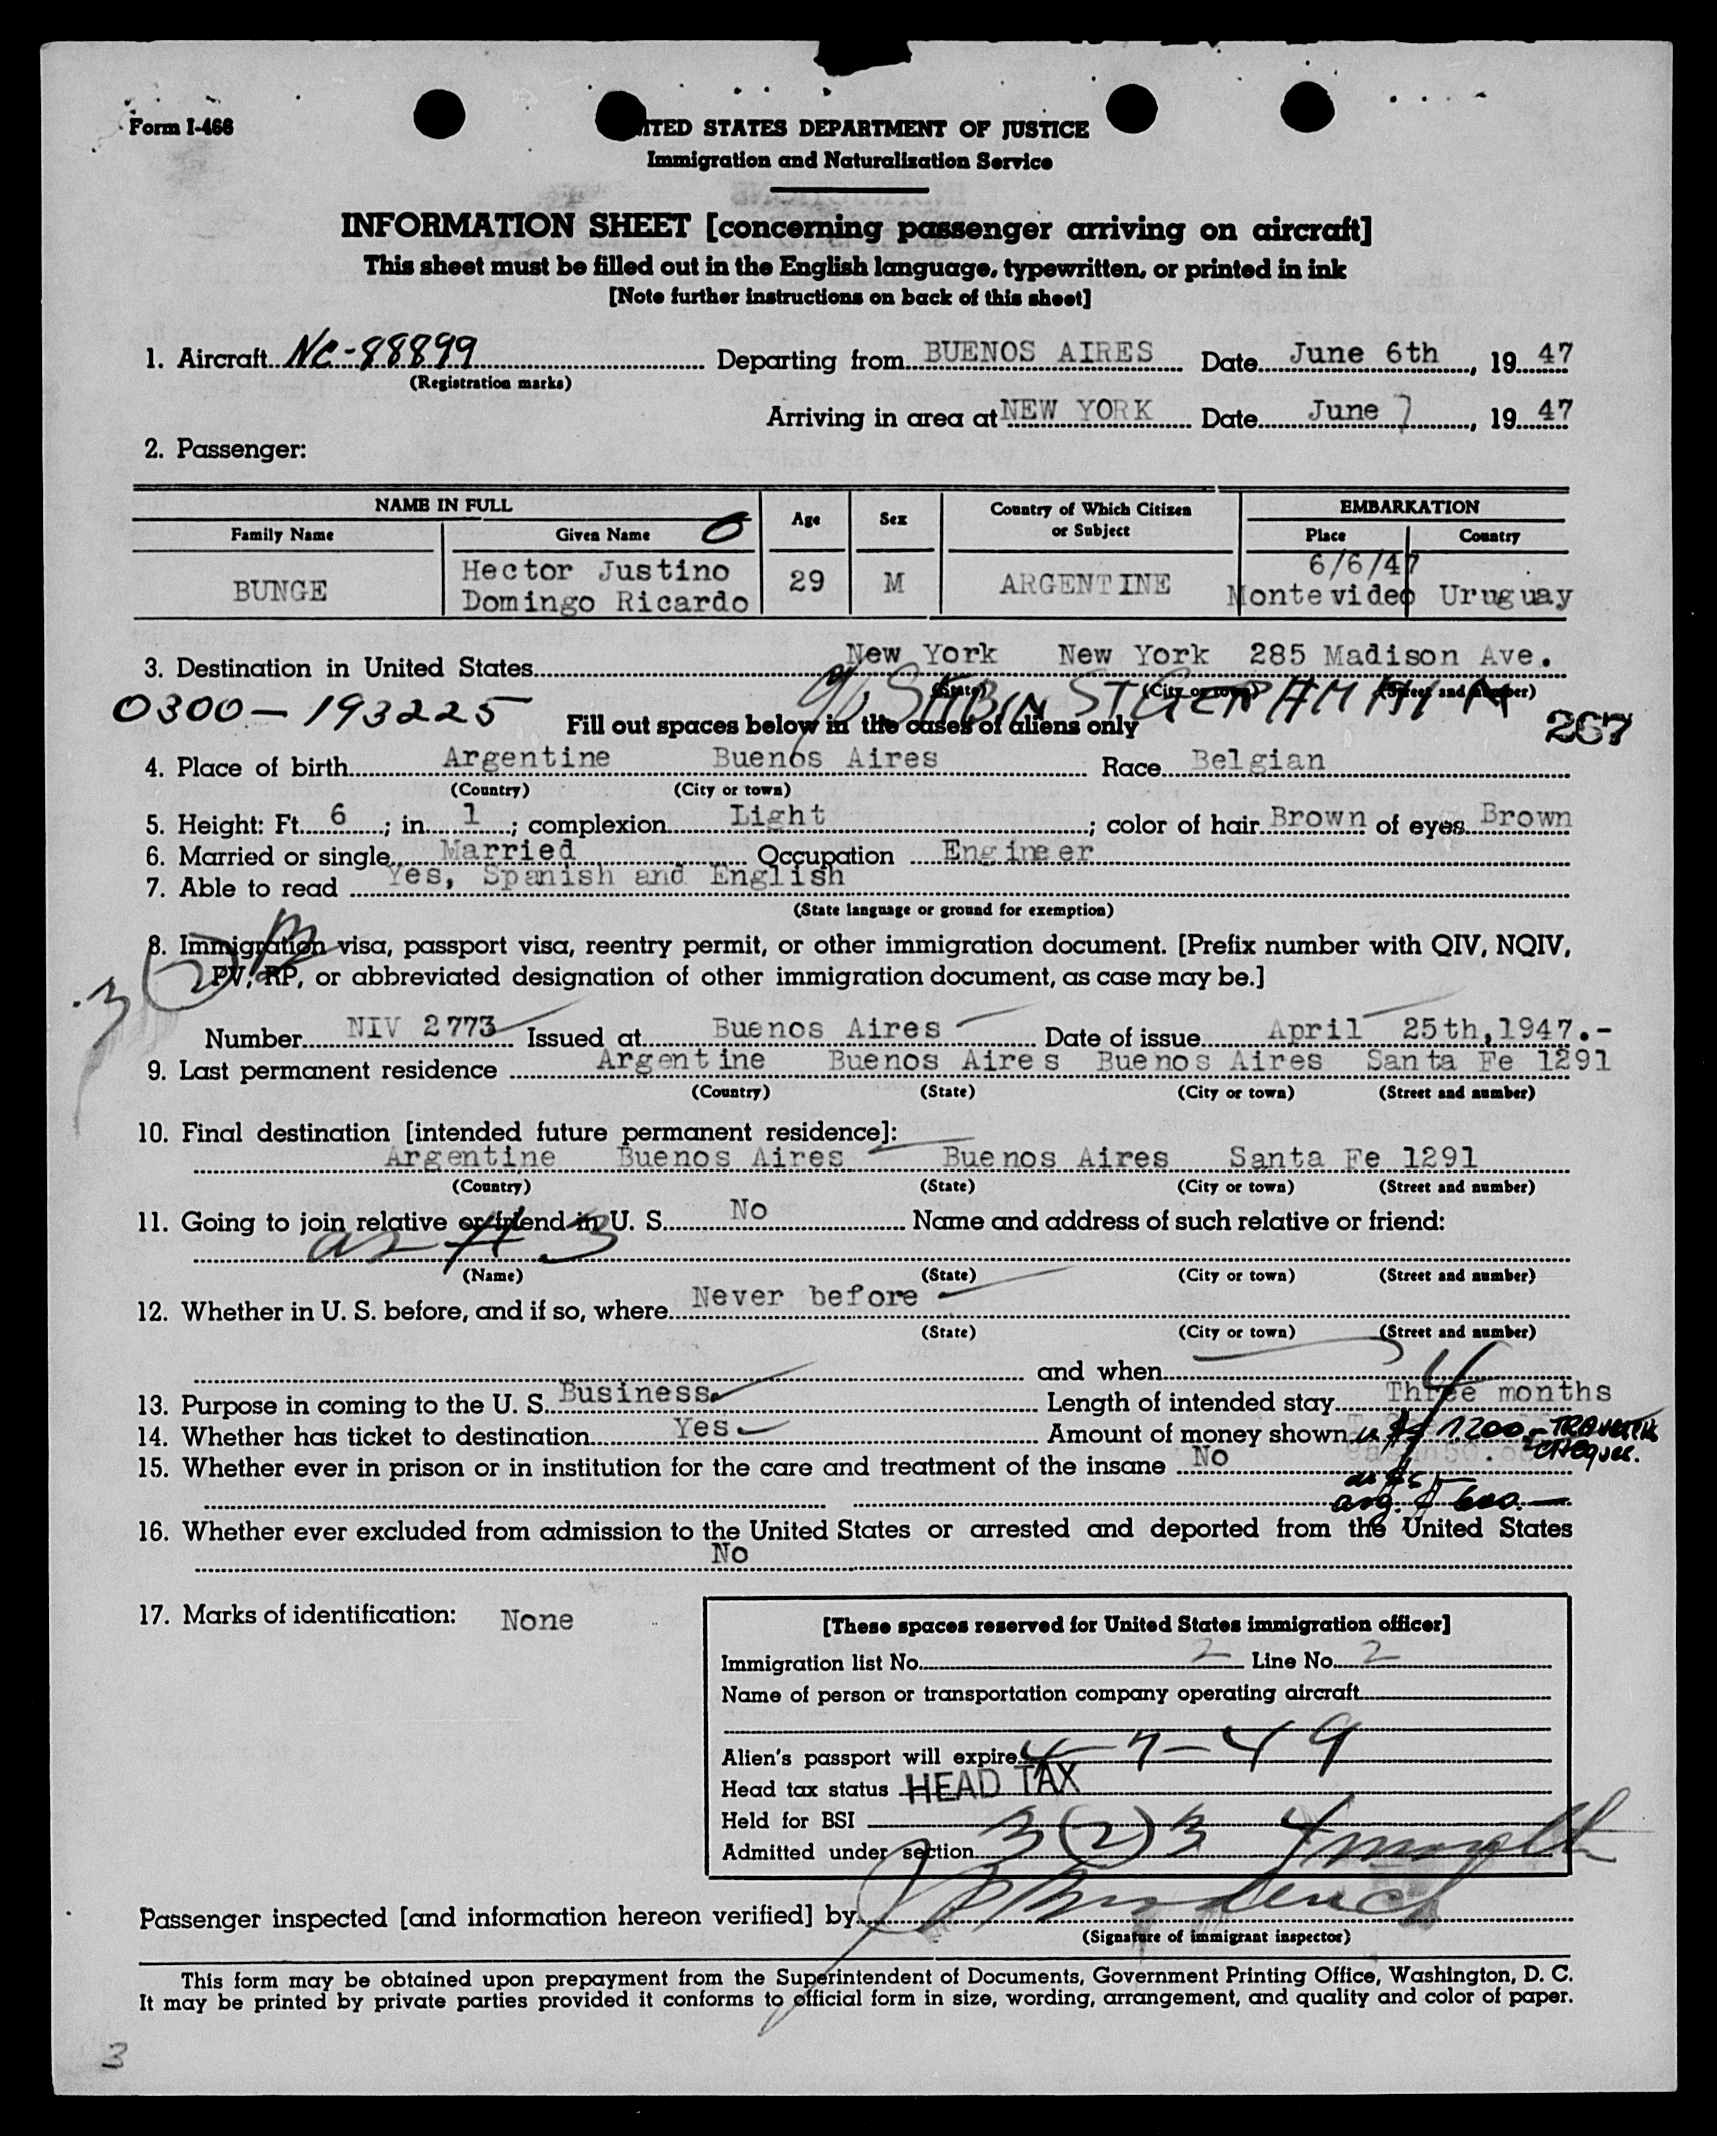 Form I-466
UNITED STATES DEPARTMENT OF JUSTICE
Immigration and Naturalization Service
INFORMATION SHEET [concerning passenger arriving on aircraft]
This sheet must be filled out in the English language, typewritten, or printed in ink
[Note further instructions on back of this sheet]
1. Aircraft NC-88899 Departing from BUENOS AIRES Date June 6th, 19 47
(Registration marks)
Arriving in area at NEW YORK Date June 7, 19 47
2. Passenger:
NAME IN FULL Age Sex Country of Which Citizen or Subject EMBARKATION
Family Name Given Name Place Country
6/6/47
BUNGE Hector Justino Domingo Ricardo 29 M ARGENTINE Montevideo Uruguay
3. Destination in United States New York New York 285 Madison Ave.
(State) (City or town) (Street and number)
0300-193225
Fill out spaces below in the cases of aliens only
267
4. Place of birth Argentine Buenos Aires Race Belgian
(Country) (City or town)
5. Height: Ft. 6; in. 1; complexion Light; color of hair Brown of eyes Brown
6. Married or single Married Occupation Engineer
7. Able to read Yes, Spanish and English
(State language or ground for exemption)
8. Immigration visa, passport visa, reentry permit, or other immigration document. [Prefix number with QIV, NQIV,
PV, RP, or abbreviated designation of other immigration document, as case may be.]
3 (2) 3
Number NIV 2773 Issued at Buenos Aires Date of issue April 25th, 1947.-
9. Last permanent residence Argentine Buenos Aires Buenos Aires Santa Fe 1291
(Country) (State) (City or town) (Street and number)
10. Final destination [intended future permanent residence]:
Argentine Buenos Aires Buenos Aires Santa Fe 1291
(Country) (State) (City or town) (Street and number)
11. Going to join relative or friend in U. S. No Name and address of such relative or friend:
as # 3
(Name) (State) (City or town) (Street and number)
12. Whether in U. S. before, and if so, where Never before
(State) (City or town) (Street and number)
and when
13. Purpose in coming to the U. S. Business Length of intended stay Three months
4
14. Whether has ticket to destination Yes Amount of money shown 1200.- TRAVELLER CHEQUES.
15. Whether ever in prison or in institution for the care and treatment of the insane No
arg. $ 600.-
16. Whether ever excluded from admission to the United States or arrested and deported from the United States
No
17. Marks of identification: None
[These spaces reserved for United States immigration officer]
Immigration list No. 2 Line No. 2
Name of person or transportation company operating aircraft
Alien's passport will expire 4-7-49
Head tax status HEAD TAX
Held for BSI
Admitted under section 3 (2) 3 4 months
Passenger inspected [and information hereon verified] by
(Signature of immigrant inspector)
This form may be obtained upon prepayment from the Superintendent of Documents, Government Printing Office, Washington, D. C.
It may be printed by private parties provided it conforms to official form in size, wording, arrangement, and quality and color of paper.
3